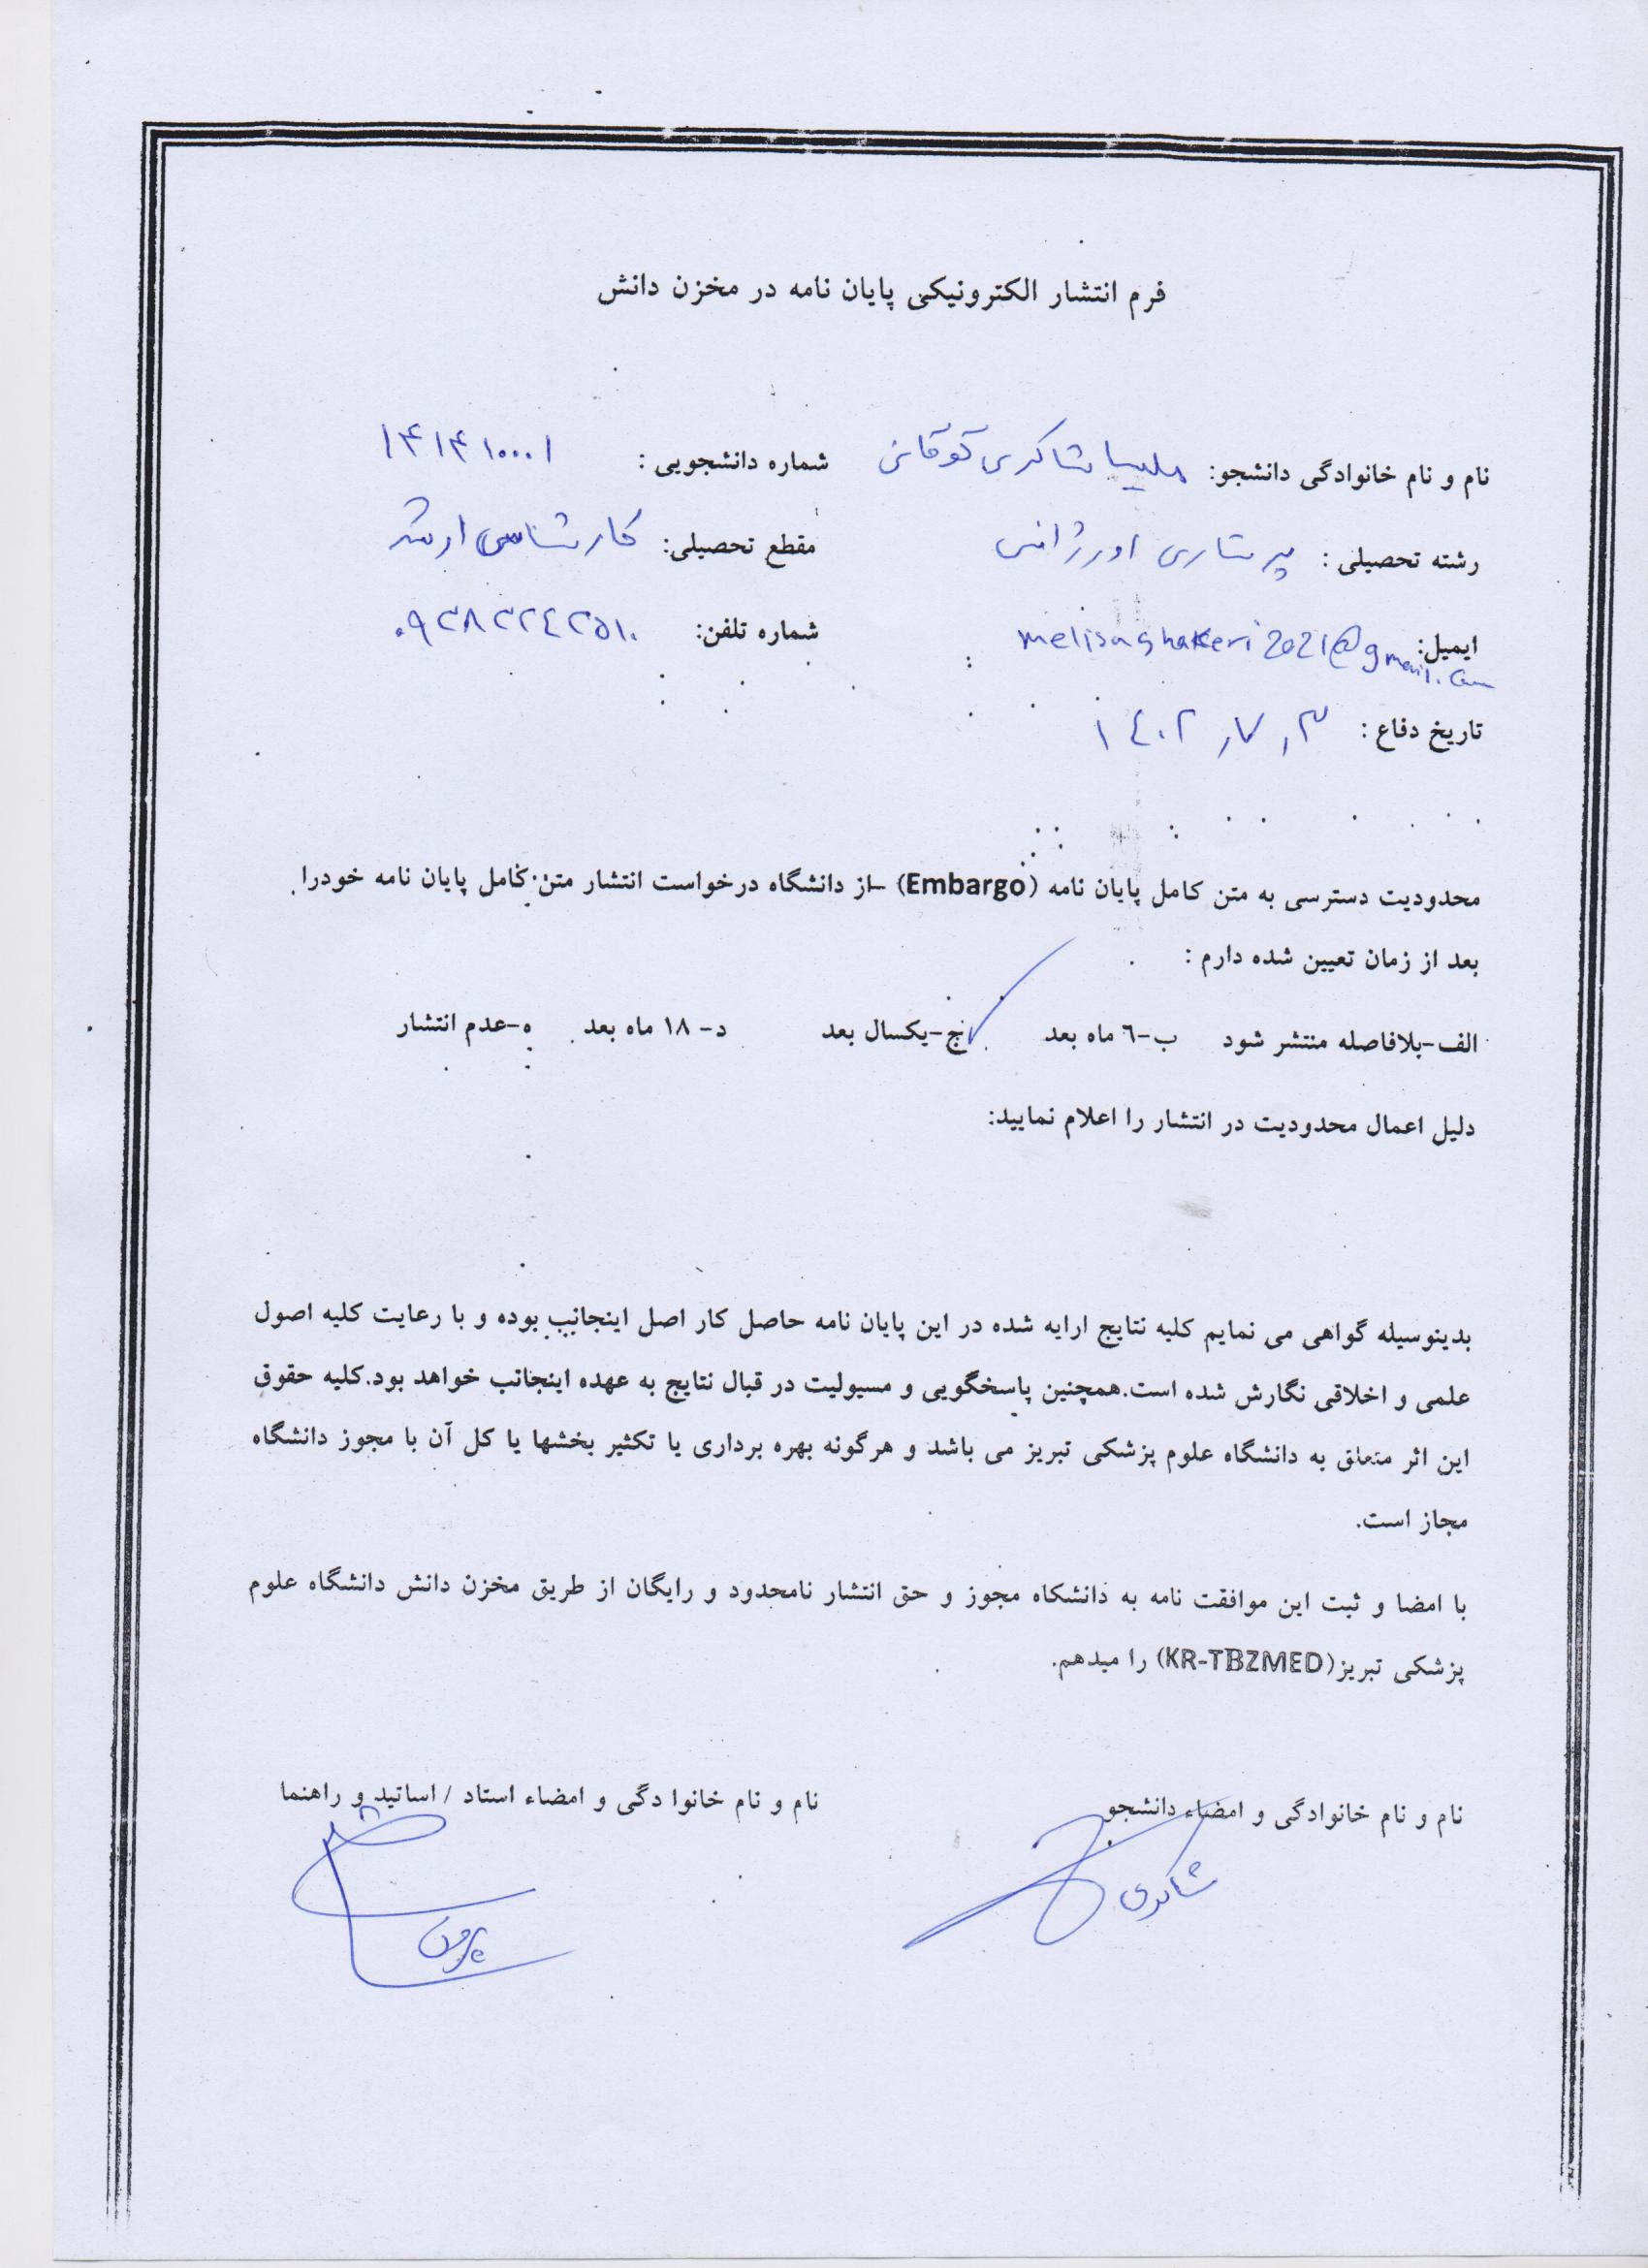 فرم انتشار الکترونیکی پایان نامه در مخزن دانش
نام و نام خانوادگی دانشجو: ملیسا شاکری توقانی شماره دانشجویی : ۱۴۱۴۱۰۰۰۱
رشته تحصیلی : پرستاری اورژانس مقطع تحصیلی: کارشناسی ارشد
ایمیل: melisashakeri2021@gmail.com شماره تلفن:
تاریخ دفاع : ۳ر۷ر۱۴۰۲
محدودیت دسترسی به متن کامل پایان نامه (Embargo) –از دانشگاه درخواست انتشار متن کامل پایان نامه خودرا
بعد از زمان تعیین شده دارم :
الف-بلافاصله منتشر شود ب-٦ ماه بعد ج-یکسال بعد د- ۱۸ ماه بعد ه-عدم انتشار
دلیل اعمال محدودیت در انتشار را اعلام نمایید:
بدینوسیله گواهی می نمایم کلیه نتایج ارایه شده در این پایان نامه حاصل کار اصل اینجانب بوده و با رعایت کلیه اصول
علمی و اخلاقی نگارش شده است.همچنین پاسخگویی و مسیولیت در قبال نتایج به عهده اینجانب خواهد بود.کلیه حقوق
این اثر متعلق به دانشگاه علوم پزشکی تبریز می باشد و هرگونه بهره برداری یا تکثیر بخشها یا کل آن با مجوز دانشگاه
مجاز است.
با امضا و ثبت این موافقت نامه به دانشکاه مجوز و حق انتشار نامحدود و رایگان از طریق مخزن دانش دانشگاه علوم
پزشکی تبریز(KR-TBZMED) را میدهم.
نام و نام خانوادگی و امضاء دانشجو نام و نام خانوا دگی و امضاء استاد / اساتید و راهنما
شاکری